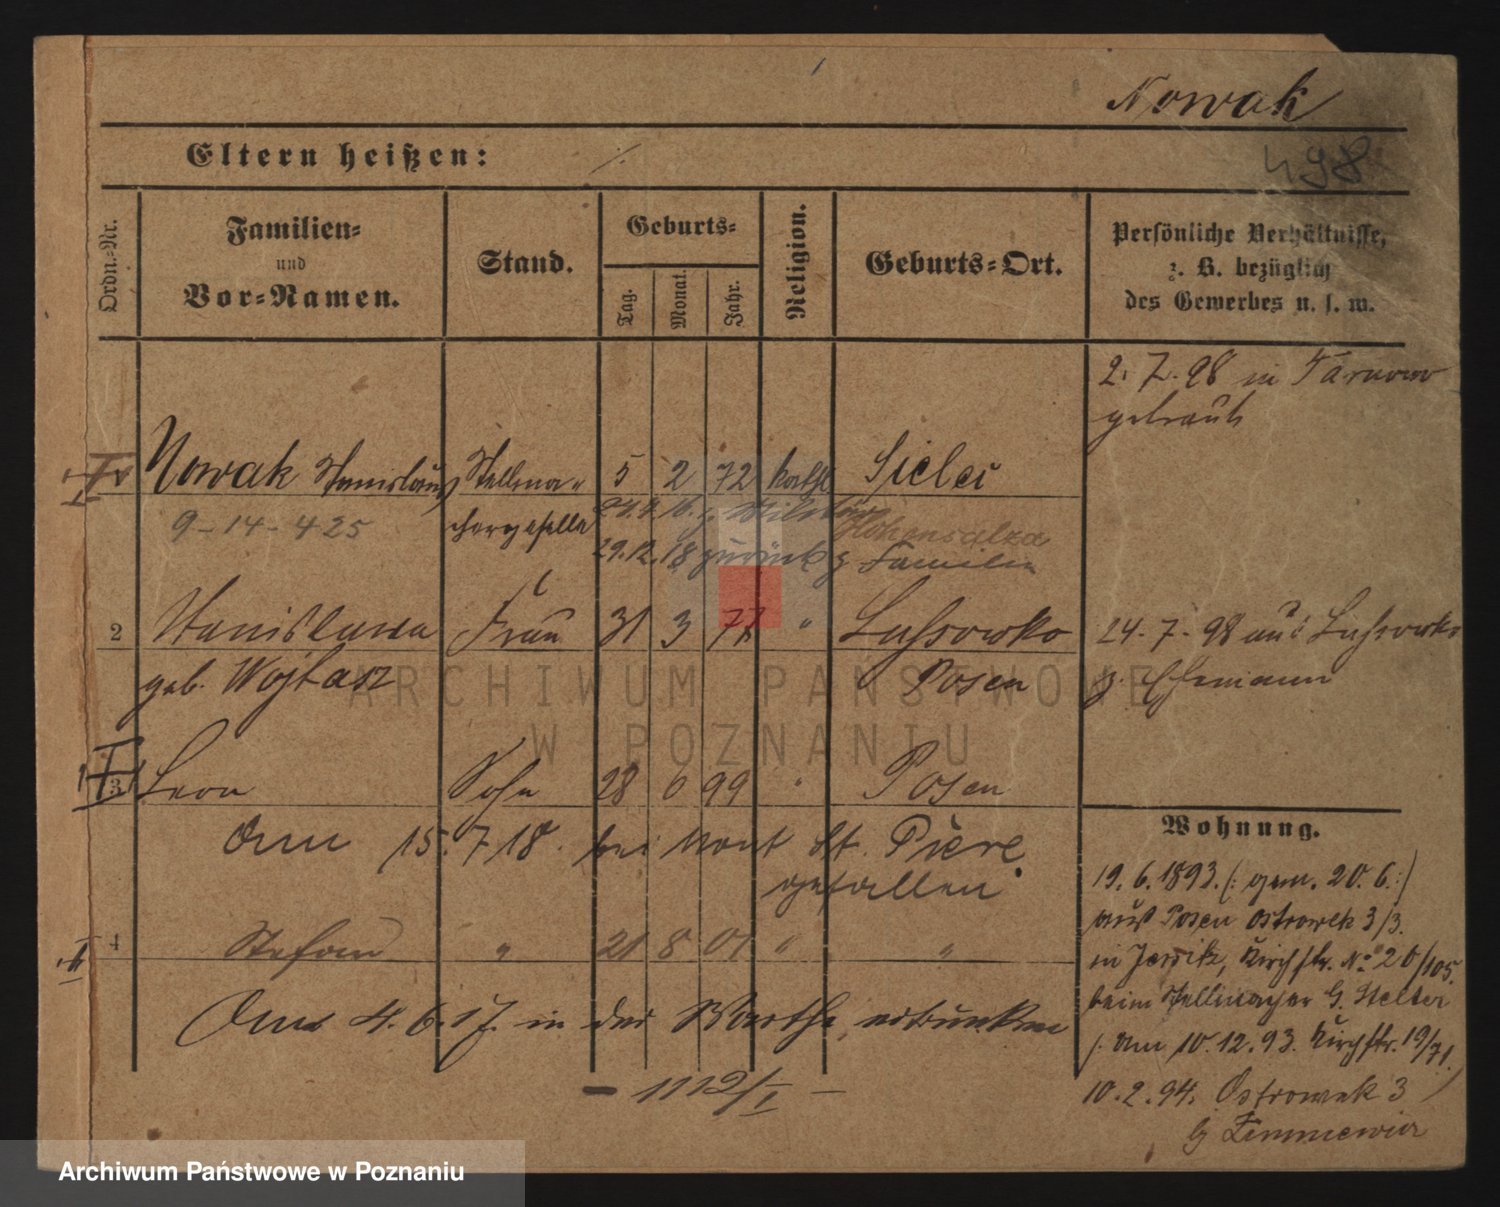 Nowak
498
Eltern heißen:
Ordn.-Nr.
Familien-
und
Vor-Namen.
Stand.
Geburts-
Tag.
Monat.
Jahr.
Religion.
Geburts-Ort.
Persönliche Verhältnisse,
z. B. bezüglich
des Gewerbes u. s. w.
2. 7. 98 in Tarnowo
getraut
Nowak Stanislaus Stellma- 5 2 72 kath Sielei
9-14-425 chergeselle
Hohensalza
29.12.18 zurück z Familie
2 Stanislawa Frau 31 3 77 " Lussowko
24. 7. 98 aus Lussowko
geb. Wojtasz Posen
z. Ehemann
3 Leon Sohn 28 6 99 " Posen
Am 15. 7 18. bei Mont St. Piere
gefallen.
4 Stefan " 21 8 01 " "
Am 4. 6. 17. in der Warthe ertrunken
- 1112/I -
Wohnung.
19. 6. 1893. (: gem. 20. 6. :)
aus Posen Ostrowek 3/3.
in Jersitz, Kirchstr. No 20/105.
beim Stellmacher G. Stelter
/. am 10. 12. 93. Kirchstr. 19/71.
10. 2. 94. Ostrowek 3
ARCHIWUM PAŃSTWOWE
W POZNANIU
Archiwum Państwowe w Poznaniu